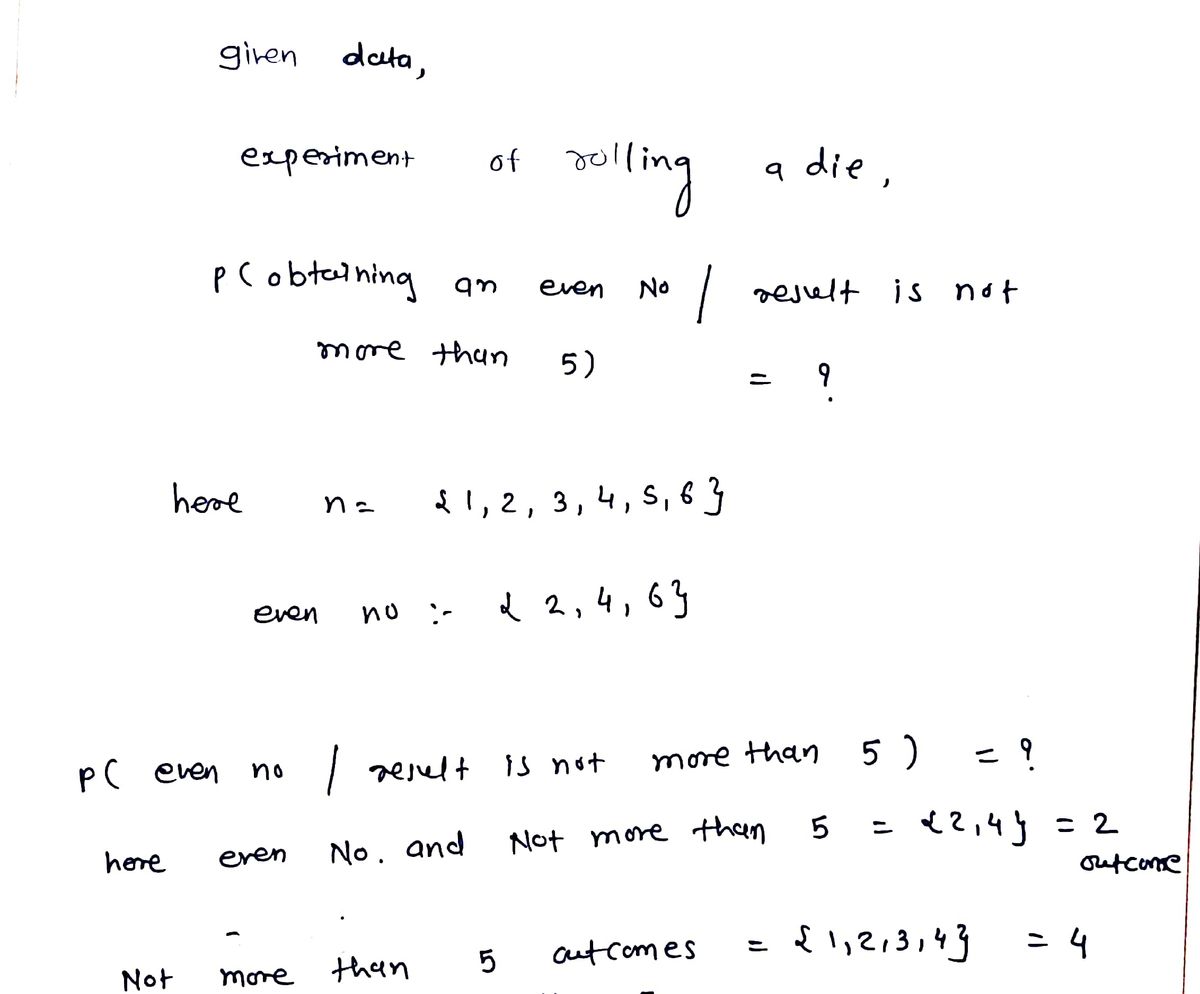 given data,
experiment of rolling a die,
P(obtaining an even No / result is not
more than 5)
= ?
here n= {1,2,3,4,5,6}
even no :- {2,4,6}
P( even no / result is not more than 5 ) = ?
here even No. and Not more than 5 = {2,4} = 2
outcome
Not more than 5 outcomes = {1,2,3,4} = 4